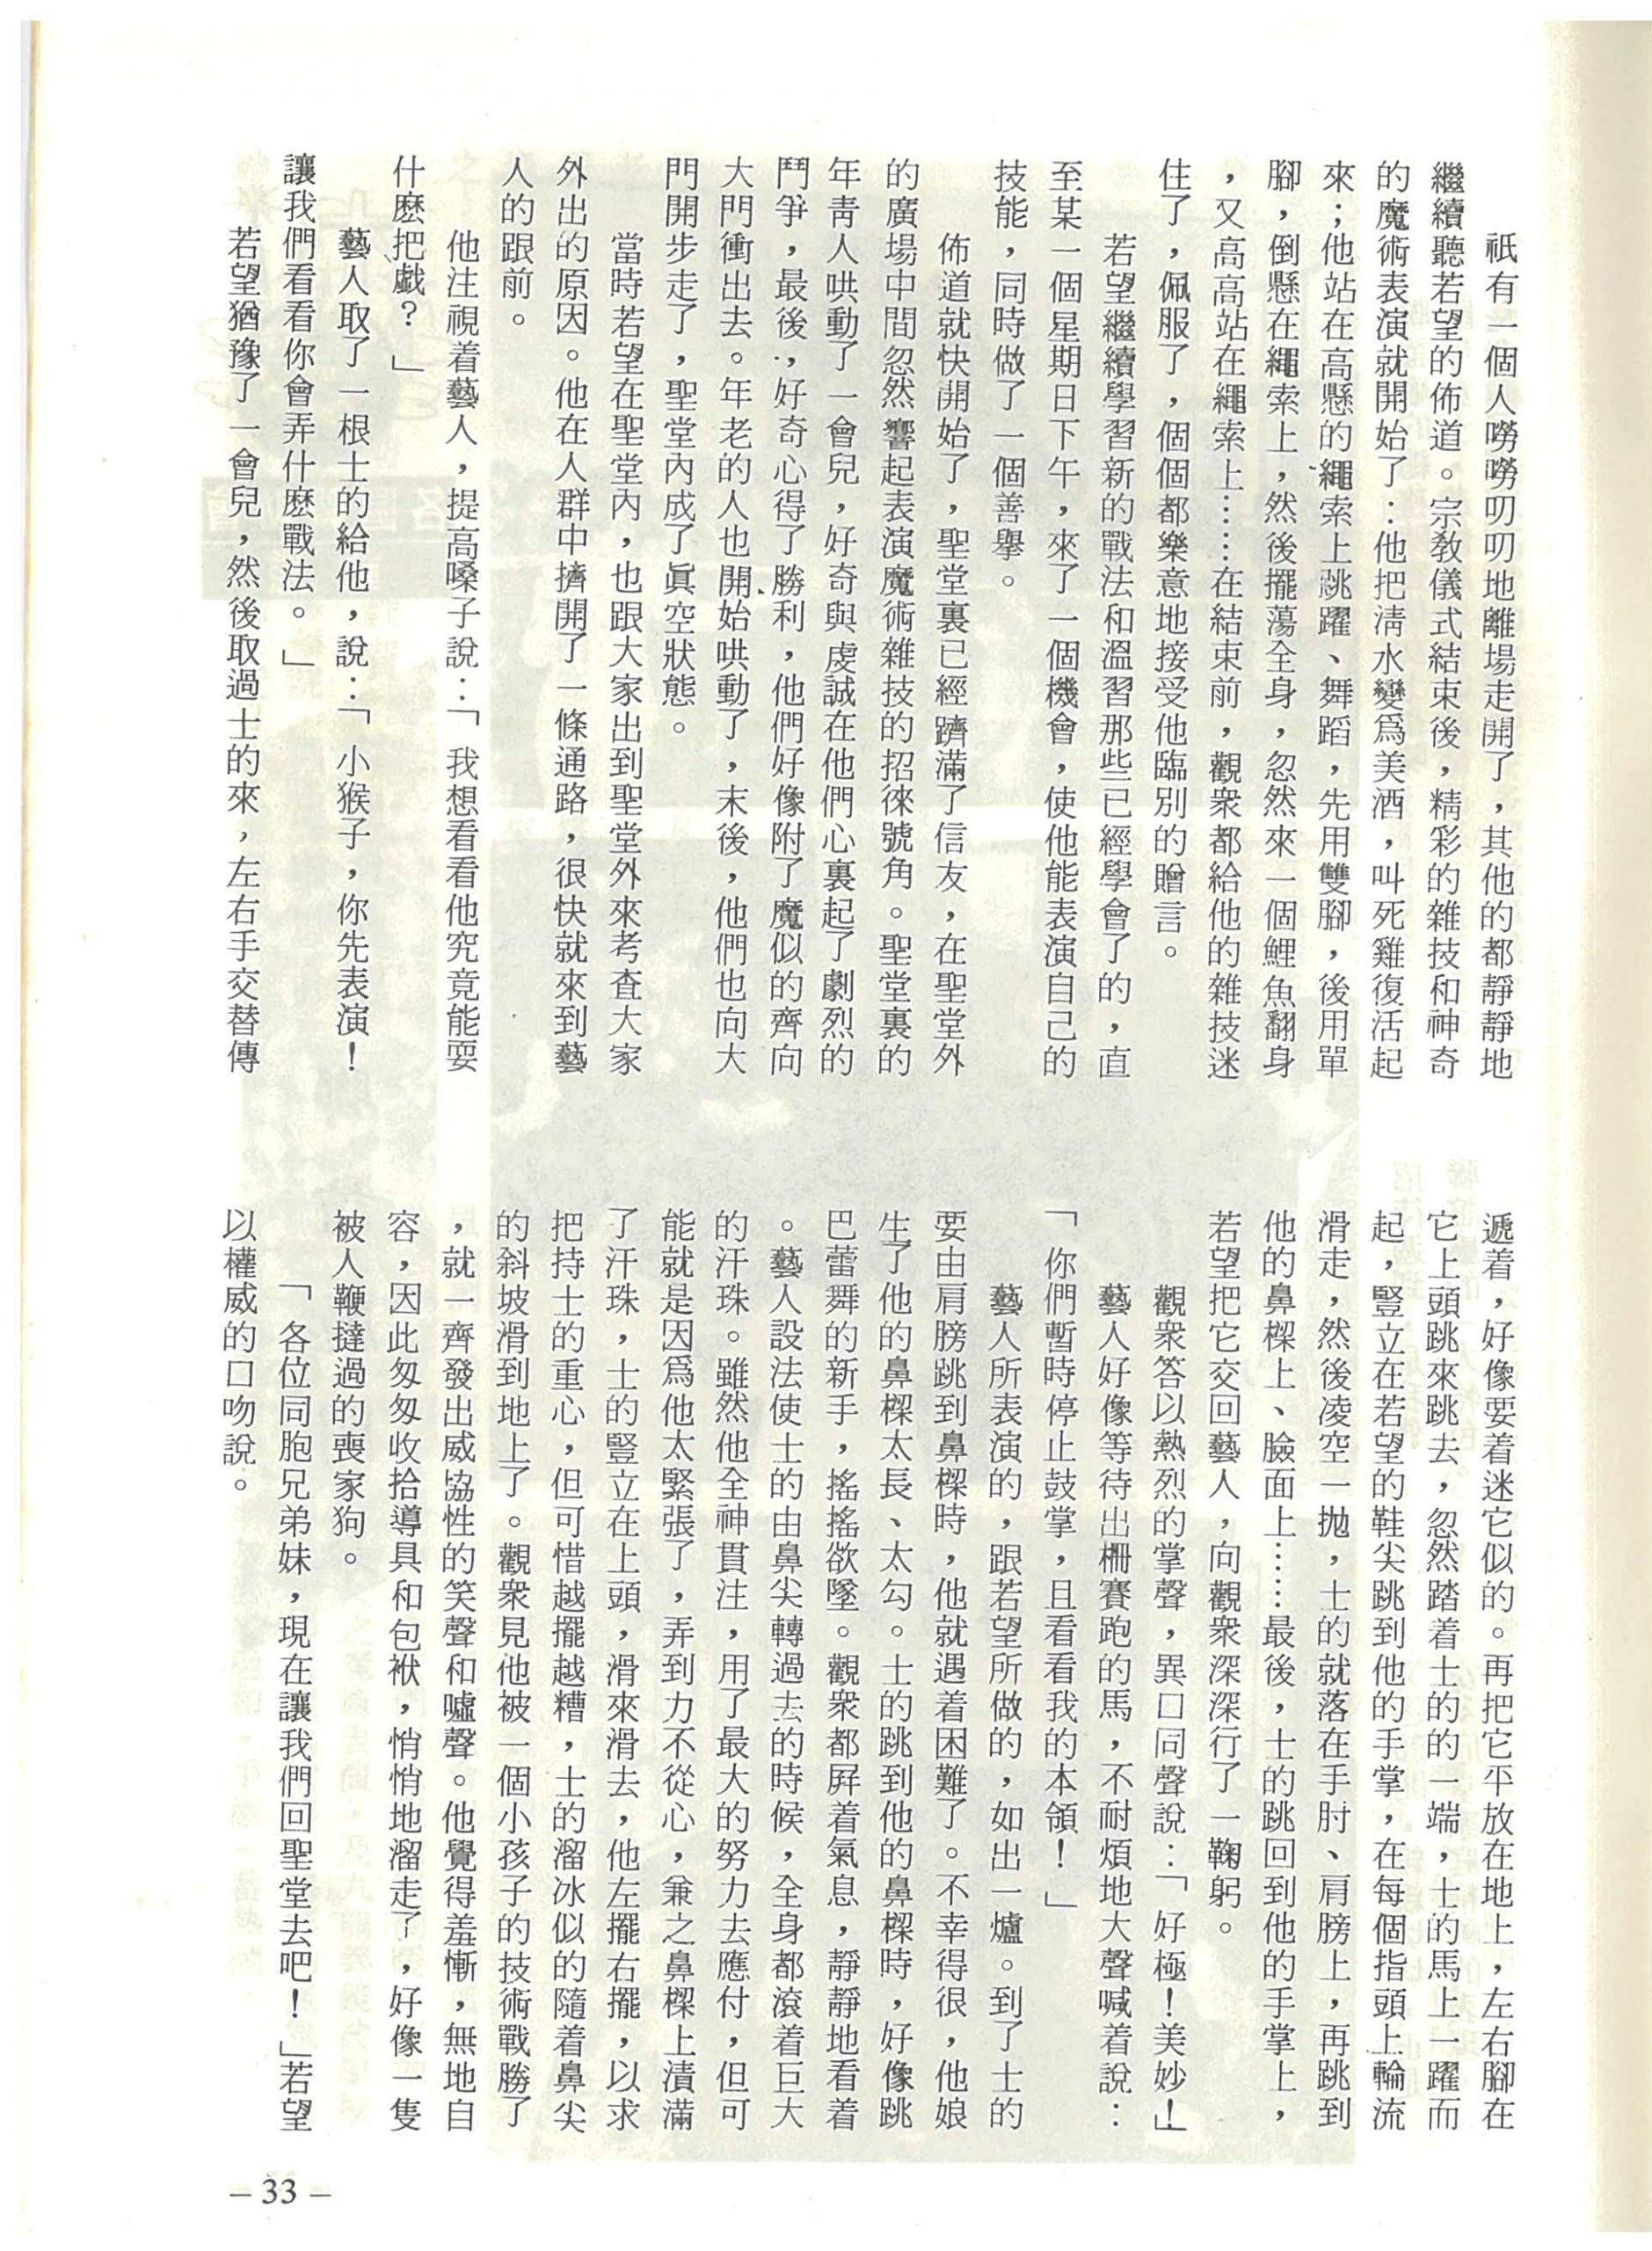 祇有一個人嘮嘮叨叨地離場走開了，其他的都靜靜地
繼續聽若望的佈道。宗敎儀式結束後，精彩的雜技和神奇
的魔術表演就開始了：他把淸水變爲美酒，叫死雞復活起
來；他站在高懸的繩索上跳躍、舞蹈，先用雙腳，後用單
腳，倒懸在繩索上，然後擺蕩全身，忽然來一個鯉魚翻身
，又高高站在繩索上……在結束前，觀衆都給他的雜技迷
住了，佩服了，個個都樂意地接受他臨別的贈言。
若望繼續學習新的戰法和溫習那些已經學會了的，直
至某一個星期日下午，來了一個機會，使他能表演自己的
技能，同時做了一個善擧。
佈道就快開始了，聖堂裏已經躋滿了信友，在聖堂外
的廣場中間忽然響起表演魔術雜技的招徠號角。聖堂裏的
年靑人哄動了一會兒，好奇與虔誠在他們心裏起了劇烈的
鬥爭，最後，好奇心得了勝利，他們好像附了魔似的齊向
大門衝出去。年老的人也開始哄動了，末後，他們也向大
門開步走了，聖堂內成了眞空狀態。
當時若望在聖堂內，也跟大家出到聖堂外來考查大家
外出的原因。他在人群中擠開了一條通路，很快就來到藝
人的跟前。
他注視着藝人，提高嗓子說：「我想看看他究竟能耍
什麽把戱？」
藝人取了一根士的給他，說：「小猴子，你先表演！
讓我們看看你會弄什麽戰法。」
若望猶豫了一會兒，然後取過士的來，左右手交替傳
遞着，好像要着迷它似的。再把它平放在地上，左右腳在
它上頭跳來跳去，忽然踏着士的的一端，士的馬上一躍而
起，豎立在若望的鞋尖跳到他的手掌，在每個指頭上輪流
滑走，然後凌空一抛，士的就落在手肘、肩膀上，再跳到
他的鼻樑上、臉面上……最後，士的跳回到他的手掌上，
若望把它交回藝人，向觀衆深深行了一鞠躬。
觀衆答以熱烈的掌聲，異口同聲說：「好極！美妙！」
藝人好像等待出柵賽跑的馬，不耐煩地大聲喊着說：
「你們暫時停止鼓掌，且看看我的本領！」
藝人所表演的，跟若望所做的，如出一爐。到了士的
要由肩膀跳到鼻樑時，他就遇着困難了。不幸得很，他娘
生了他的鼻樑太長、太勾。士的跳到他的鼻樑時，好像跳
巴蕾舞的新手，搖搖欲墜。觀衆都屛着氣息，靜靜地看着
。藝人設法使士的由鼻尖轉過去的時候，全身都滾着巨大
的汗珠。雖然他全神貫注，用了最大的努力去應付，但可
能就是因爲他太緊張了，弄到力不從心，兼之鼻樑上漬滿
了汗珠，士的豎立在上頭，滑來滑去，他左擺右擺，以求
把持士的重心，但可惜越擺越糟，士的溜冰似的隨着鼻尖
的斜坡滑到地上了。觀衆見他被一個小孩子的技術戰勝了
，就一齊發出威協性的笑聲和噓聲。他覺得羞慚，無地自
容，因此匆匆收拾導具和包袱，悄悄地溜走了，好像一隻
被人鞭撻過的喪家狗。
「各位同胞兄弟妹，現在讓我們回聖堂去吧！」若望
以權威的口吻說。
– 33 –